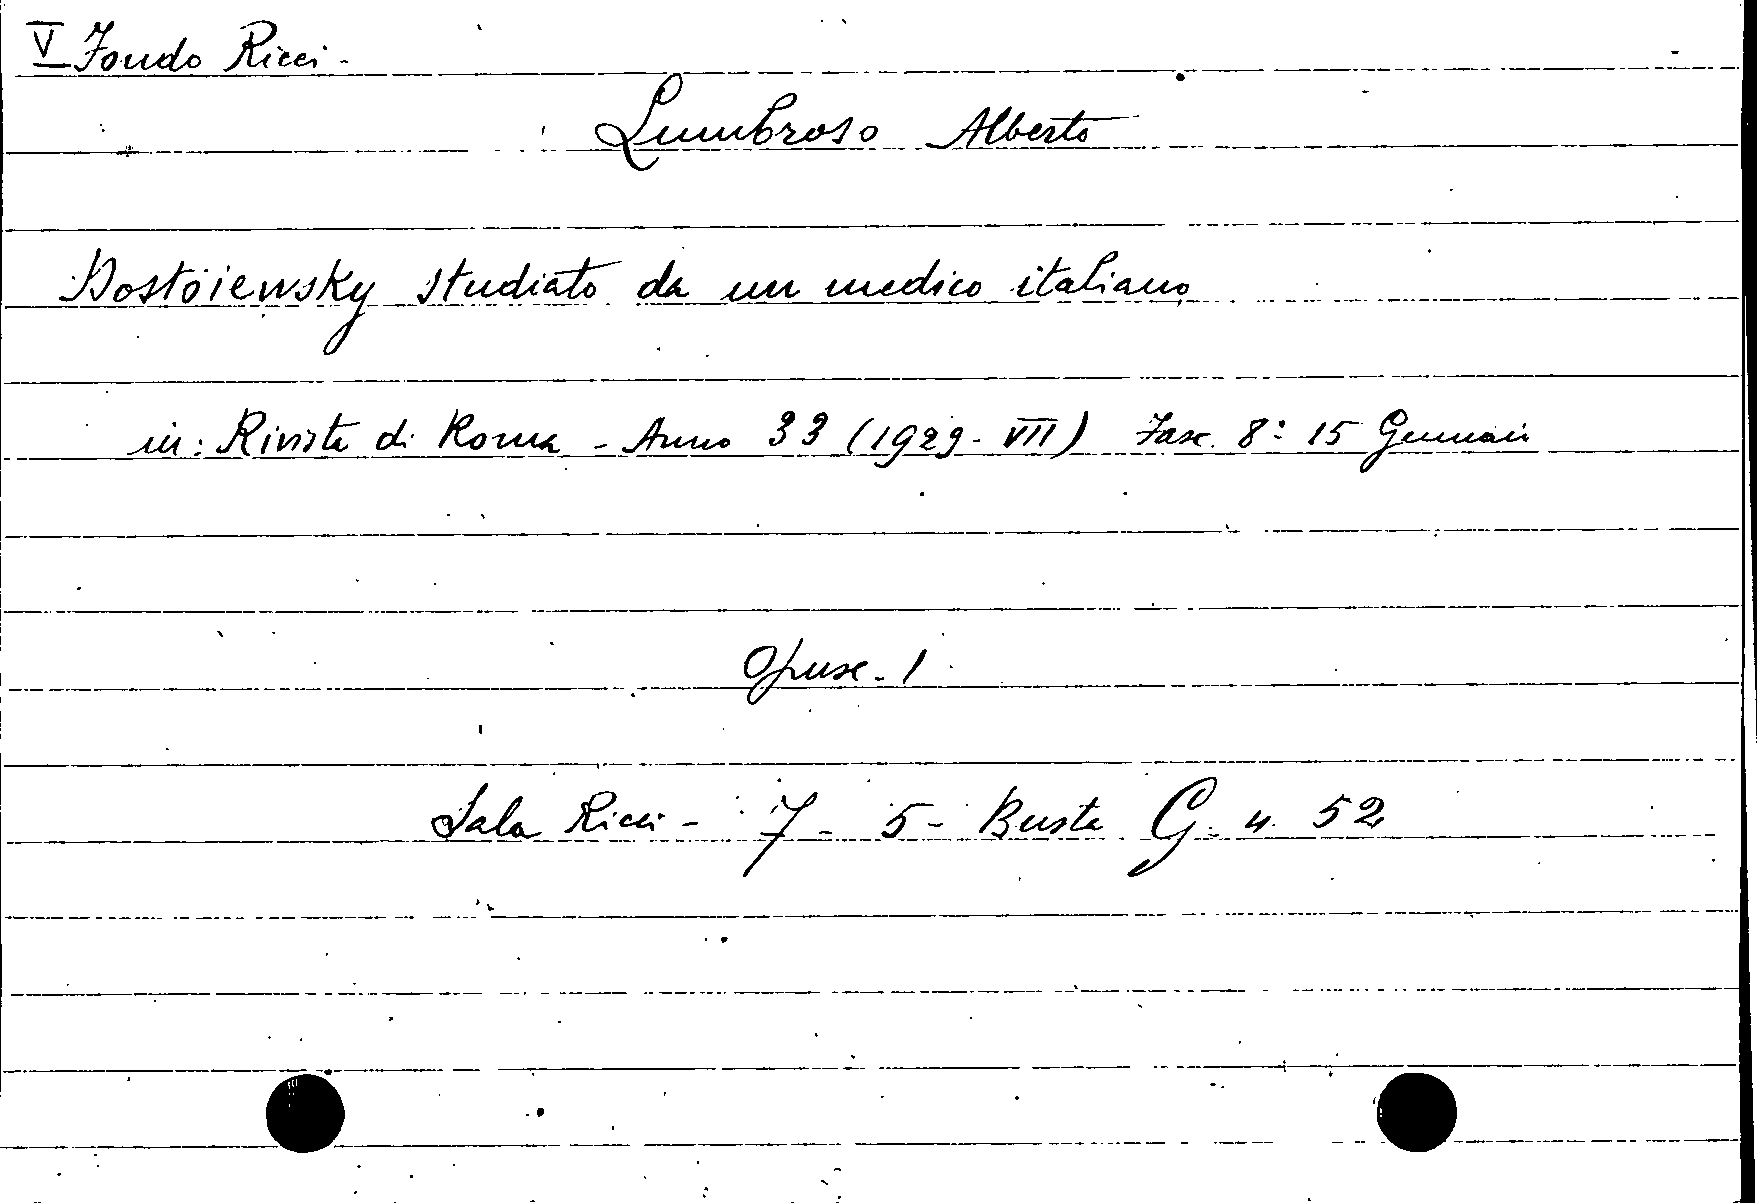 V Fondo Ricci -
Lumbroso Alberto
Dostoiewsky studiato da un medico italiano
in: Rivista di Roma - Anno 33 (1929 - VII) Fasc. 8º 15 Gennaio
Opusc. 1
Sala Ricci - 7 - 5 - Busta G. n. 52